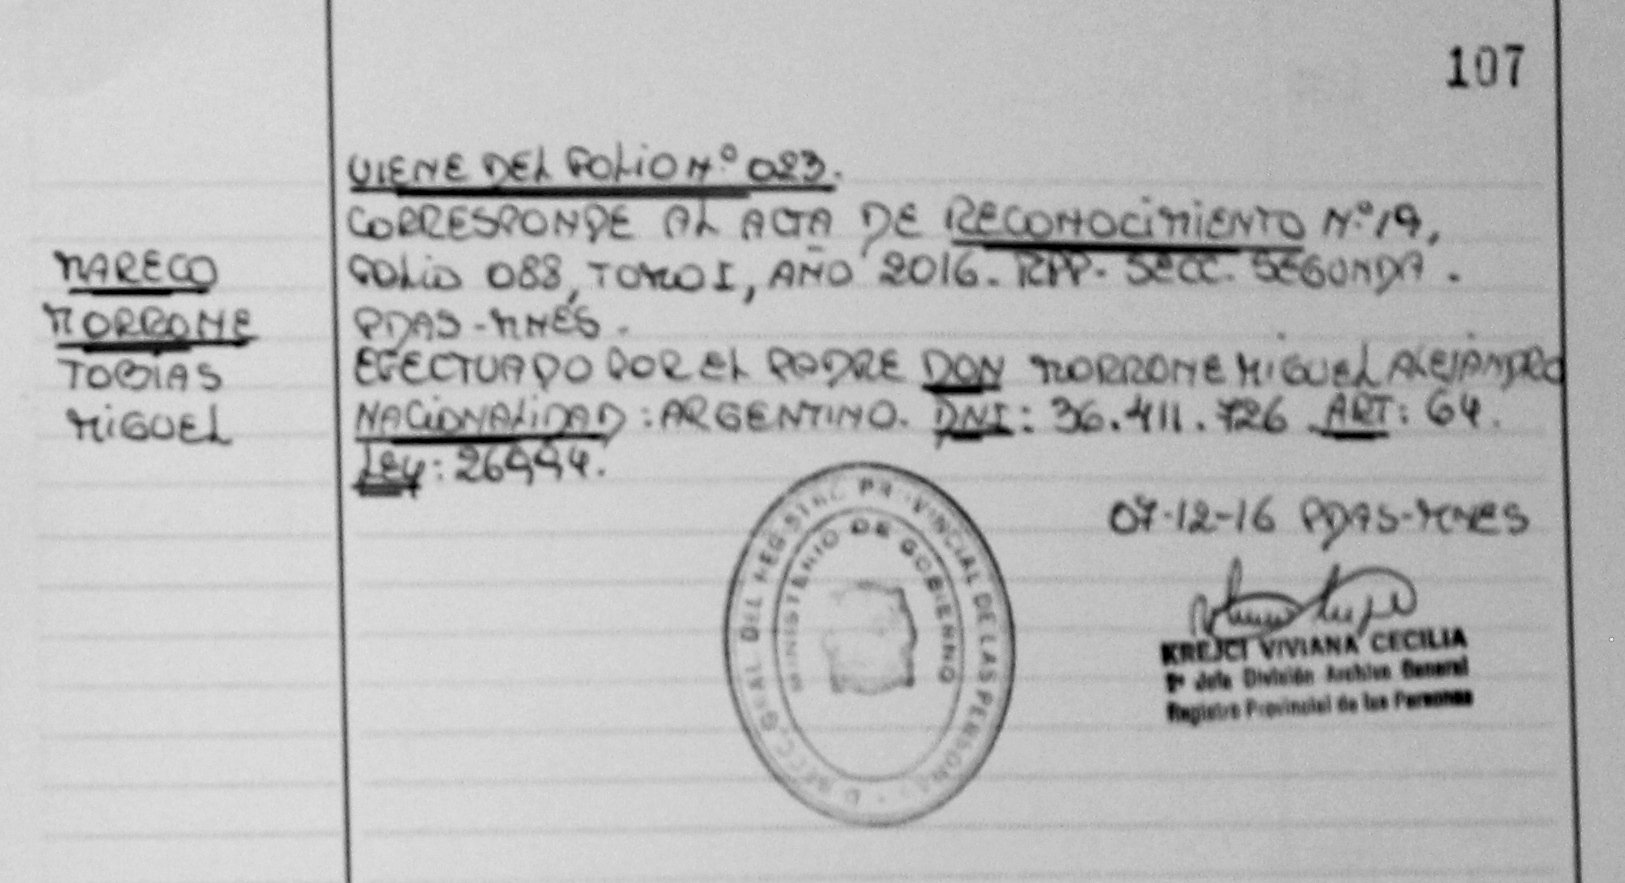 107
VIENE DEL FOLIO N.º 023.
CORRESPONDE AL ACTA DE RECONOCIMIENTO N.º 19,
FOLIO 088, TOMO I, AÑO 2016. RPP. SECC. SEGUNDA.
PDAS-MNES.
EFECTUADO POR EL PADRE DON MORRONE MIGUEL ALEJANDRO
NACIONALIDAD: ARGENTINO. DNI: 36.411.726 ART: 64.
LEY: 26994.
MARECO
MORRONE
TOBIAS
MIGUEL
07-12-16 PDAS-MNES
KREJCI VIVIANA CECILIA
2º Jefe División Archivo General
Registro Provincial de las Personas
GRAL DEL REGISTRO PROVINCIAL DE LAS PERSONAS
MINISTERIO DE GOBIERNO